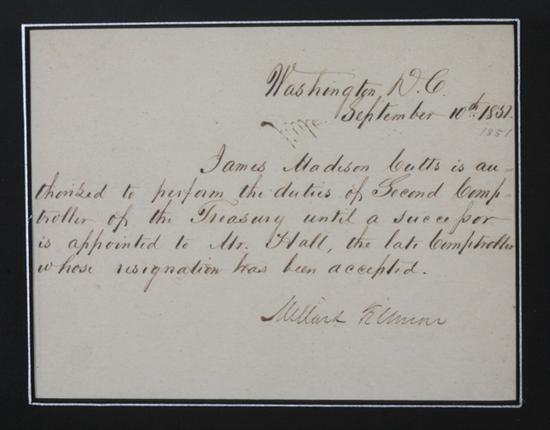 Washington, D.C.
September 10th 1851.
1851
James Madison Cutts is au-
thorized to perform the duties of Second Comp-
troller of the Treasury until a successor
is appointed to Mr. Hall, the late Comptroller
whose resignation has been accepted.
Millard Fillmore